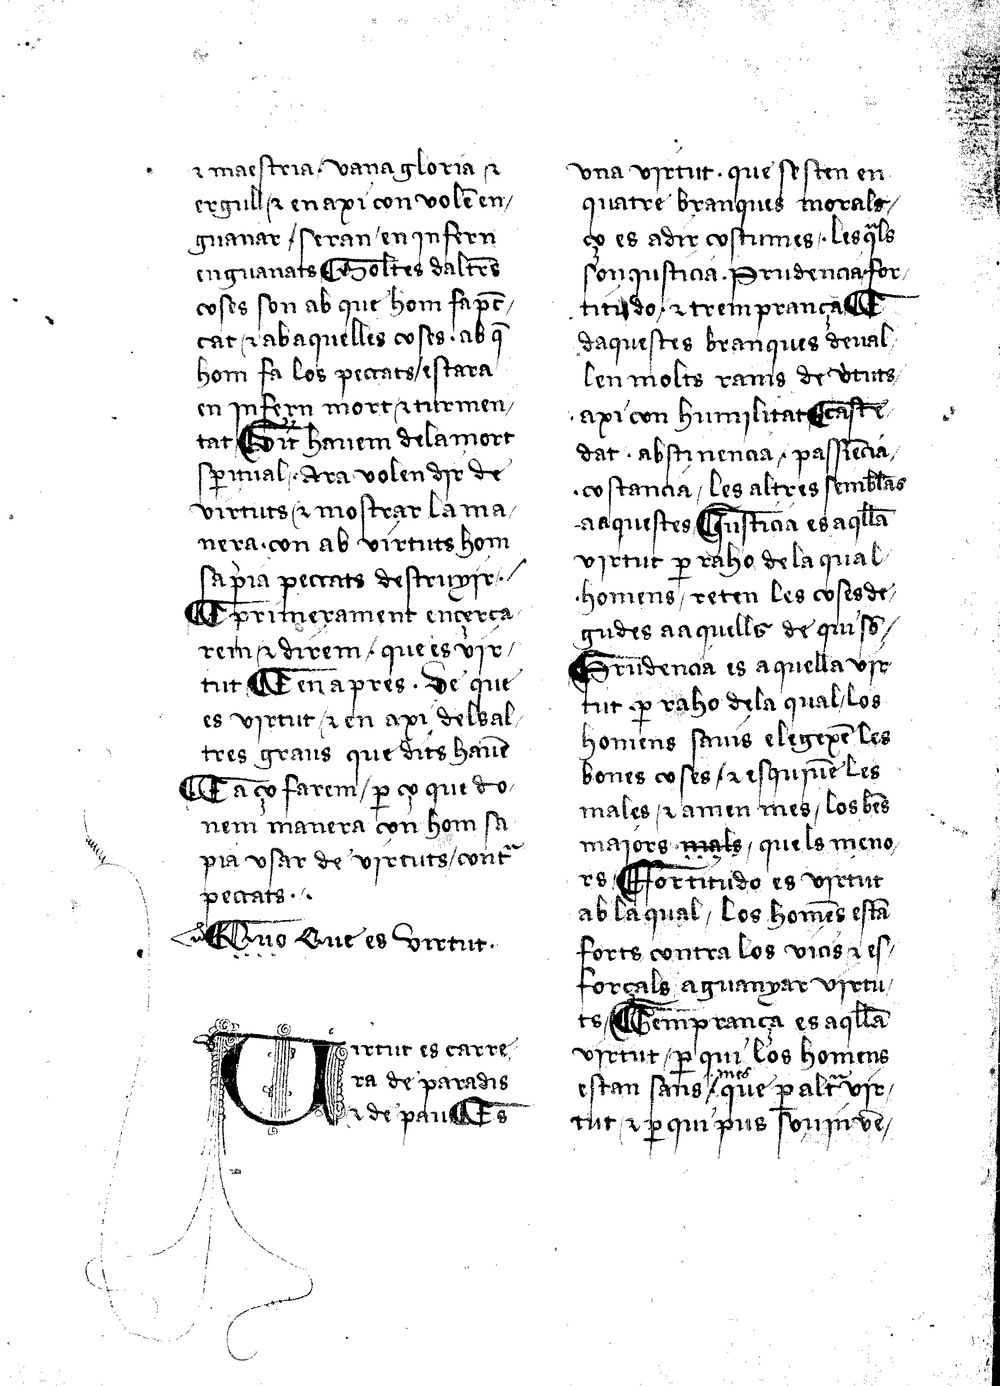 ⁊ maestria · vana gloria ⁊
ergull / ⁊ en axi con volē en/
guanar / seran / en infern
enguanats Moltes daltrēs
coses son ab que hom fa pec̄/
cat / ⁊ ab aquelles coses · ab q̄
hom fa los peccats / estara
en infern mort ⁊ turmen/
tat Dit hauem dela mort
sp̄itual · Ara volen dir de
virtuts / ⁊ mostrar la ma/
nera · con ab virtuts hom
sapia peccats destruyir · /
E primerament encerca/
rem / ⁊ direm / que es vir/
tut E en apres · De que
es virtut / ⁊ en axi dels al/
tres graus que dits hauē
E aço farem / p̱ ço que do/
nem manera con hom sa
pia vsar de virtuts / contᵃ
peccats · .
Quo Que es virtut ·
Virtut es carre/
ra de paradis
⁊ de pau Es
vna virtut · que sesten en
quatre branques morals /
ço es adir costumes / · les qᵃls
son iusticia · Prudencia for/
titudo · ⁊ tremprança E
daquestes branques deual/
len molts rams de v̄tuts /
axi con humilitat Castē/
dat · abstinencia / passiēcia /
costancia / les altres semblās
aaquestes Iusticia es aqll̄a
virtut p̱ raho dela qual /
homens / reten les coses de/
gudes aaquells de qui sō /
Prudencia es aquella vir
tut p̱ raho dela qual / los
homens sauis elegexē les
bones coses / ⁊ esquiuē les
males / ⁊ amen mes / los bēs
maiors mals / quels meno/
rs Fortitudo es virtut
ab la qual / los homēs estā
forts contra los vicis ⁊ es/
forçals aguanyar virtu/
ts / Temprança es aqll̄a
virtut / p̱ qui los homens
estan sans / mes que p̱ altᵃ vir/
tut / ⁊ p̱ qui pus son inuē/